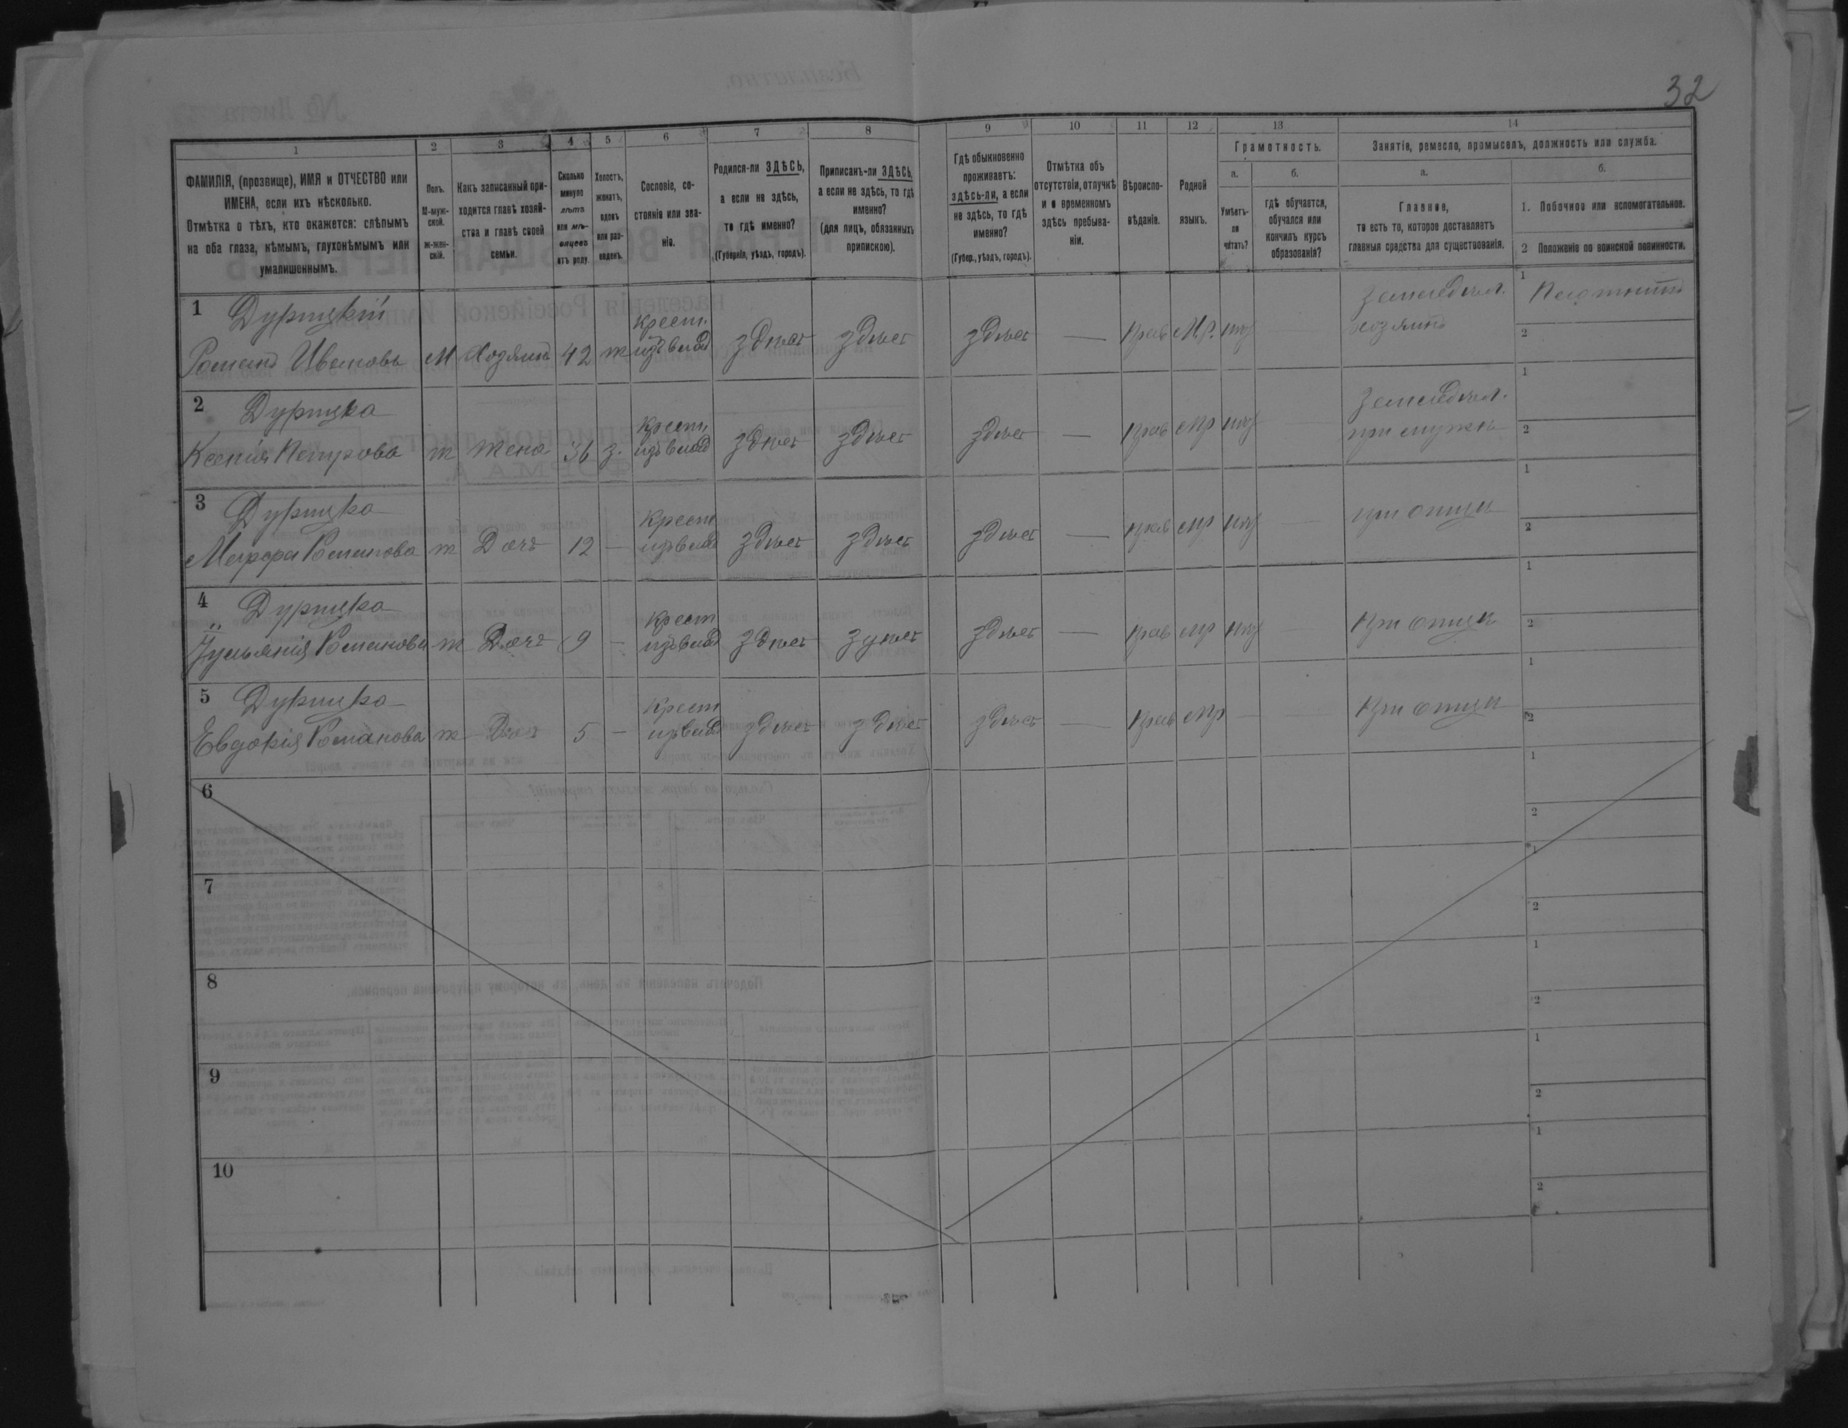 32
1 2 3 4 5 6 7 8 9 10 11 12 13 14
ФАМИЛІЯ, (прозвище), ИМЯ и ОТЧЕСТВО или
ИМЕНА, если ихъ нѣсколько.
Отмѣтка о тѣхъ, кто окажется: слѣпымъ
на оба глаза, нѣмымъ, глухонѣмымъ или
умалишеннымъ.
Полъ.
М-муж-
ской.
Ж-жен-
скій.
Какъ записанный при-
ходится главѣ хозяй-
ства и главѣ своей
семьи.
Сколько
минуло
лѣтъ
или мѣ-
сяцевъ
отъ роду
Холостъ,
женатъ,
вдовъ
или раз-
веденъ.
Сословіе, со-
стояніе или зва-
ніе.
Родился-ли ЗДѢСЬ,
а если не здѣсь,
то гдѣ именно?
(Губернія, уѣздъ, городъ).
Приписанъ-ли ЗДѢСЬ,
а если не здѣсь, то гдѣ
именно?
(для лицъ, обязанныхъ
припискою).
Гдѣ обыкновенно
проживаетъ:
здѣсь-ли, а если
не здѣсь, то гдѣ
именно?
(Губер., уѣздъ, городъ).
Отмѣтка объ
отсутствіи, отлучкѣ
и о временномъ
здѣсь пребыва-
ніи.
Вѣроиспо-
вѣданіе.
Родной
языкъ.
Грамотность.
а.
Умѣетъ-
ли
читать?
б.
гдѣ обучается,
обучался или
кончилъ курсъ
образованія?
Занятія, ремесло, промыселъ, должность или служба.
а.
Главное,
то есть то, которое доставляетъ
главныя средства для существованія.
б.
1. Побочное или вспомогательное.
2 Положеніе по воинской повинности.
1 Земледѣл. 1
Романъ Ивановъ М Хозяинъ 42 ж Крест. изъ влад здѣсь здѣсь здѣсь — Прав Мр. нѣт — хозяинъ 2
2 Земледѣл. 1
Ксенія Петрова ж Жена 36 з. Крест. изъ влад здѣсь здѣсь здѣсь — Прав Мр нѣт — при мужѣ 2
3 1
Марфа Романова ж Дочь 12 — Крест изъ влад здѣсь здѣсь здѣсь — Прав Мр нѣт — при отцѣ 2
4 1
Романова ж Дочь 9 — Крест изъ влад здѣсь здѣсь здѣсь — Прав Мр нѣт — при отцѣ 2
5 1
Евдокія Романова ж Дочь 5 — Крест изъ влад здѣсь здѣсь здѣсь — Прав Мр — при отцѣ 2
6 1
2
7 1
2
8 1
2
9 1
2
10 1
2